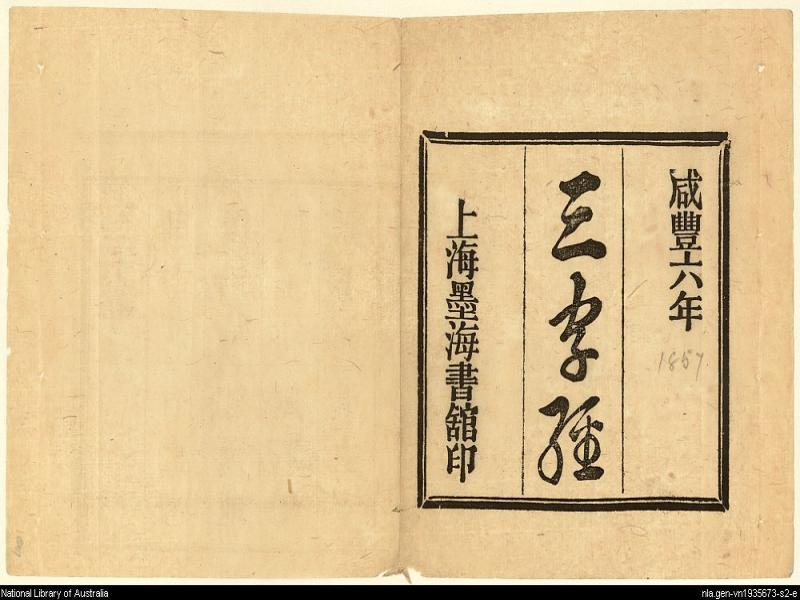 咸豐六年
1857
三字經
上海墨海書館印
National Library of Australia
nla.gen-vn1935673-s2-e